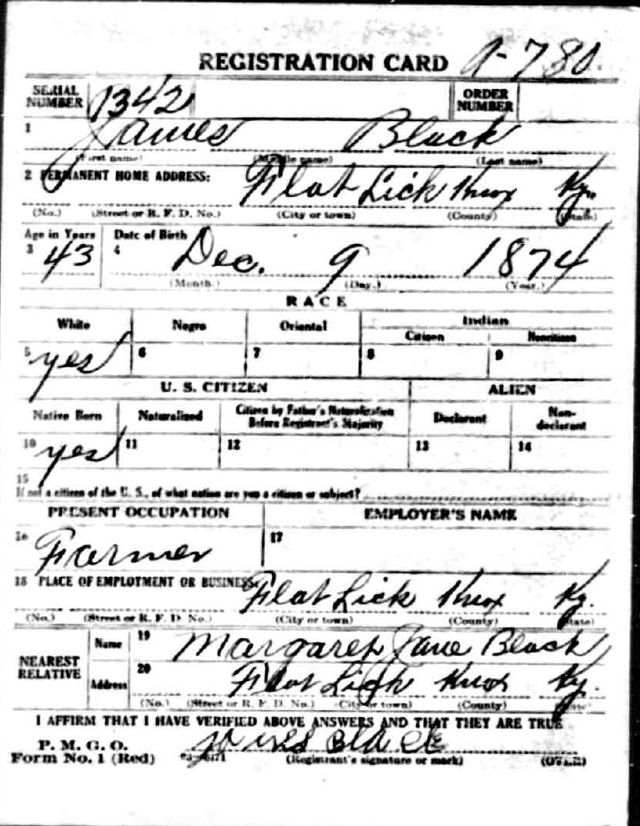 REGISTRATION CARD A-780.
SERIAL NUMBER 1342 ORDER NUMBER
1 James Black
(First name) (Middle name) (Last name)
2 PERMANENT HOME ADDRESS: Flat Lick Knox Ky.
(No.) (Street or R. F. D. No.) (City or town) (County) (State)
Age in Years Date of Birth
3 43 4 Dec. 9 1874
(Month.) (Day.) (Year.)
RACE
White Negro Oriental Indian
Citizen Noncitizen
5 yes 6 7 8 9
U. S. CITIZEN ALIEN
Native Born Naturalized Citizen by Father's Naturalization Before Registrant's Majority Declarant Non-declarant
10 yes 11 12 13 14
15
If not a citizen of the U. S., of what nation are you a citizen or subject?
PRESENT OCCUPATION EMPLOYER'S NAME
16 Farmer 17
18 PLACE OF EMPLOYMENT OR BUSINESS: Flat Lick Knox Ky.
(No.) (Street or R. F. D. No.) (City or town) (County) (State)
NEAREST RELATIVE Name 19 Margaret Jane Black
Address 20 Flat Lick Knox Ky.
(No.) (Street or R. F. D. No.) (City or town) (County) (State)
I AFFIRM THAT I HAVE VERIFIED ABOVE ANSWERS AND THAT THEY ARE TRUE
P. M. G. O.
Form No. 1 (Red) (Registrant's signature or mark) (OVER)